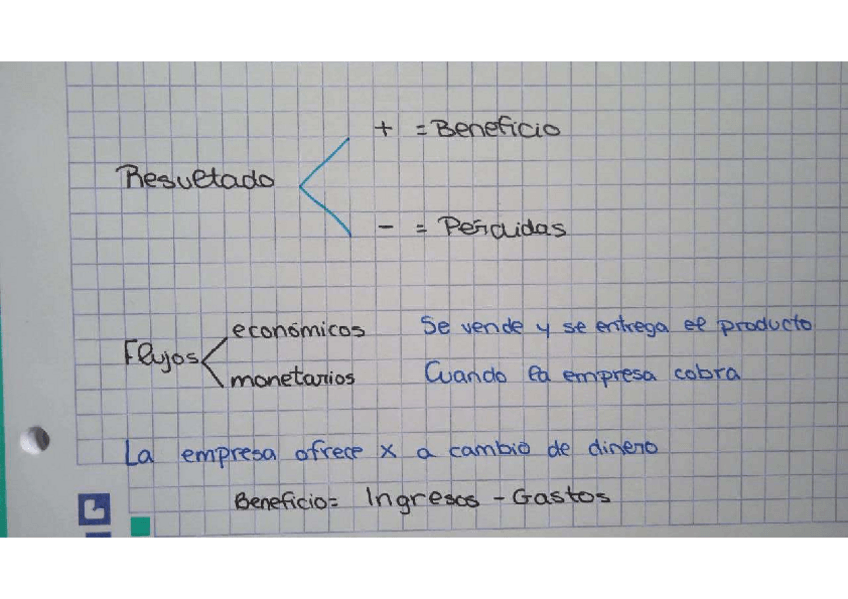 + = Beneficio
Resultado
- = Pérdidas
económicos Se vende y se entrega el producto
Flujos
monetarios Cuando la empresa cobra
La empresa ofrece x a cambio de dinero
Beneficio= Ingresos - Gastos